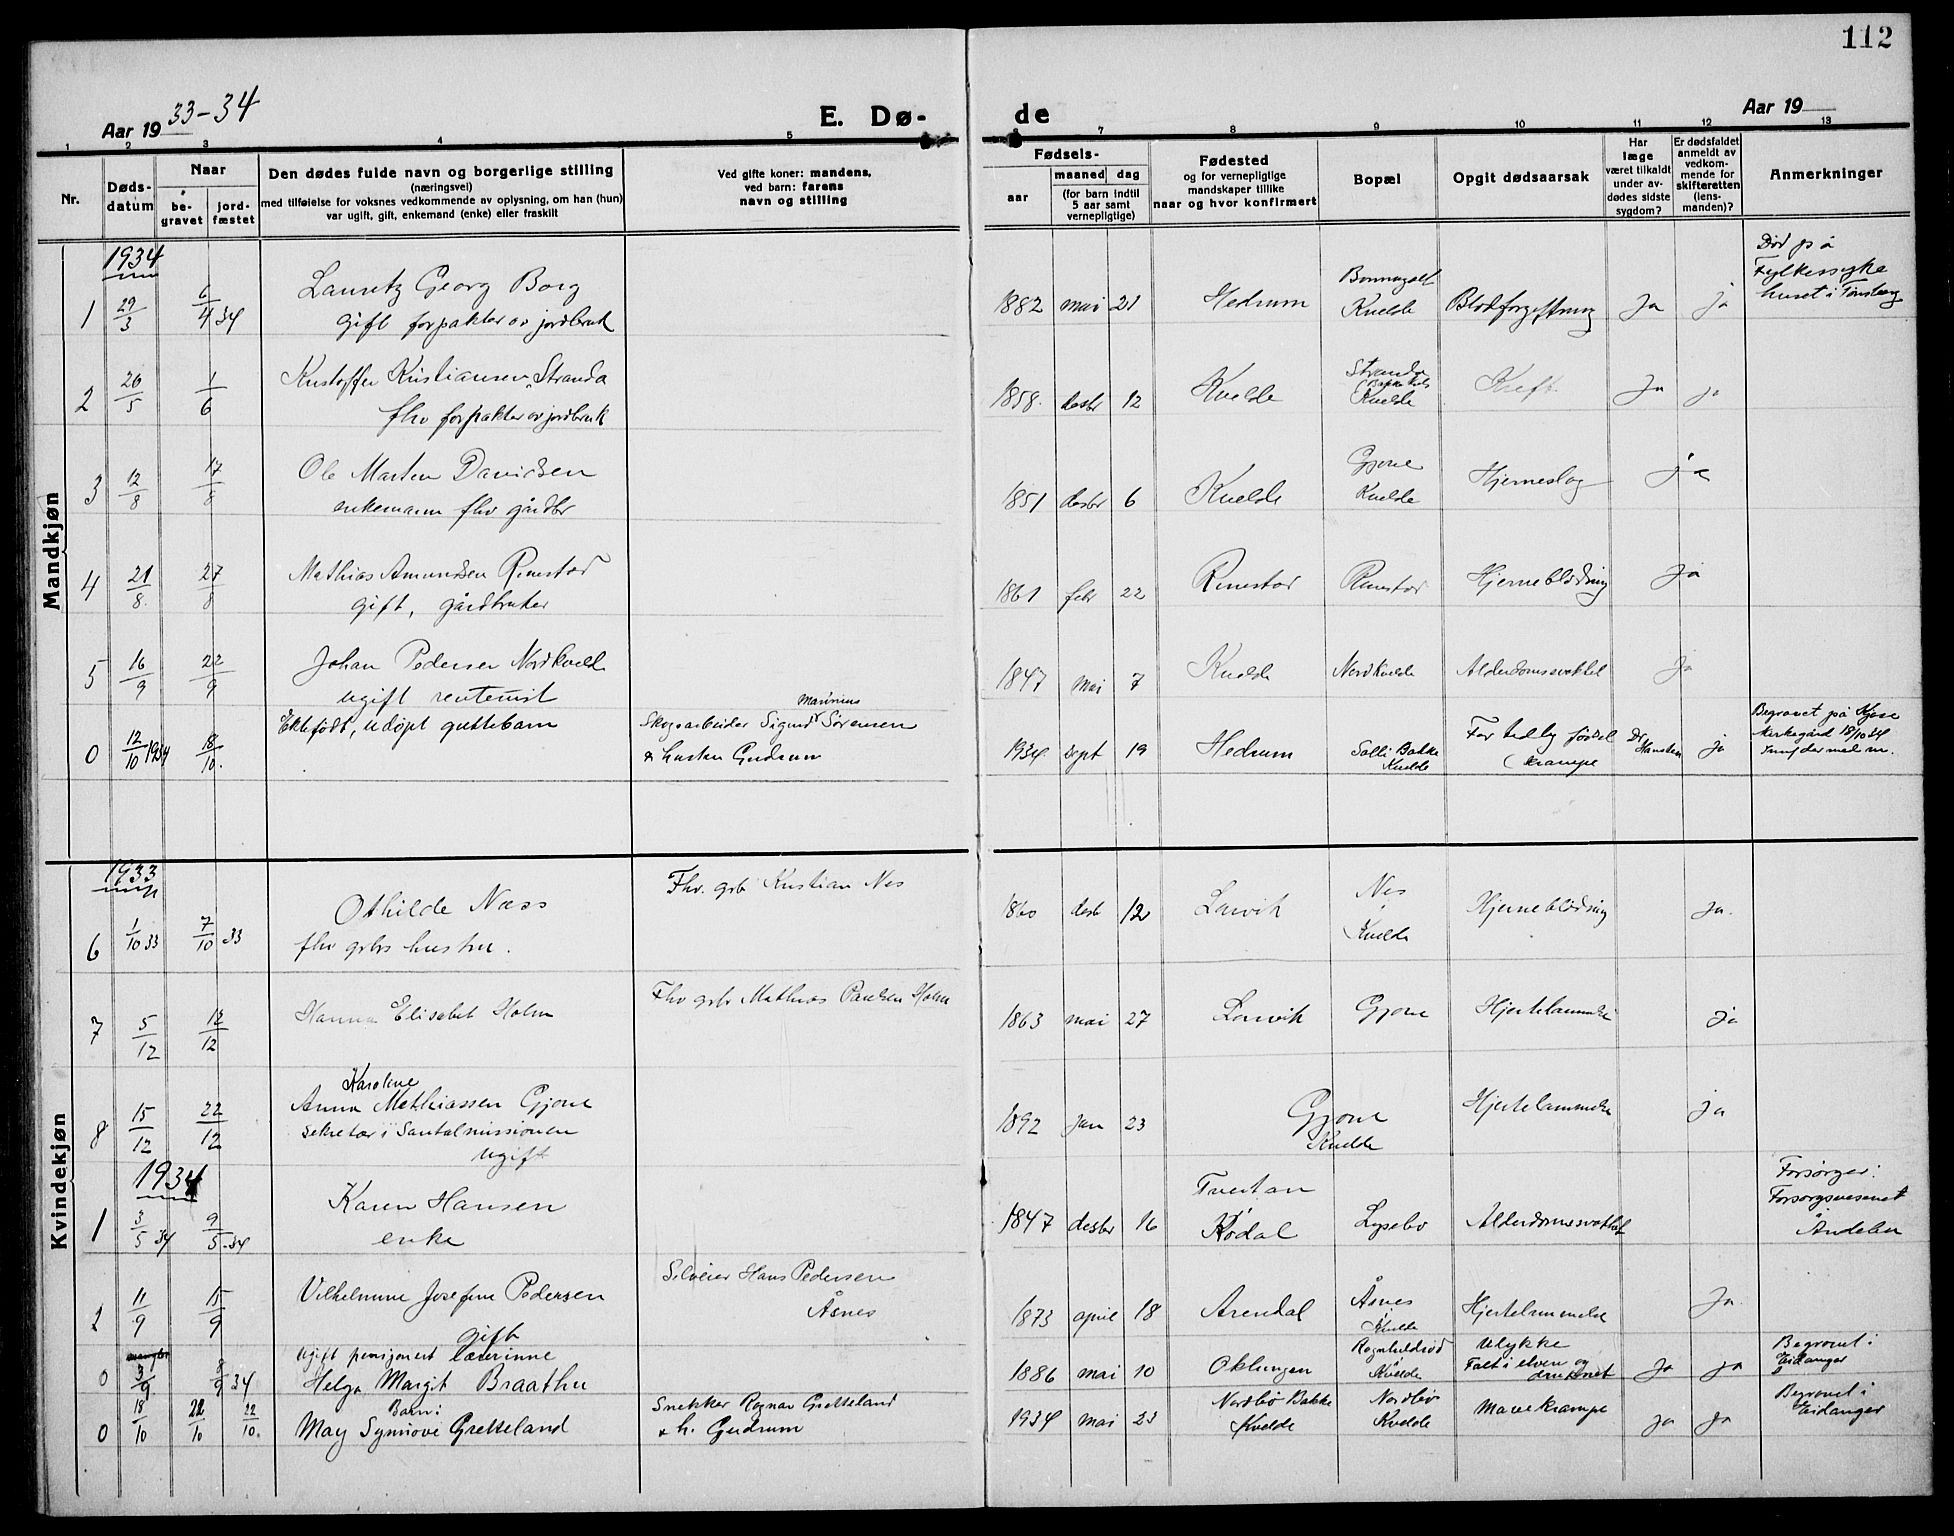 112
Aar 19 33-34
E. Dø-
de
Aar 19
1 2 3 4 5 7 8 9 10 11 12 13
Nr.
Døds-
datum
Naar
be-
gravet
jord-
fæstet
Den dødes fulde navn og borgerlige stilling
(næringsvei)
med tilføielse for voksnes vedkommende av oplysning, om han (hun)
var ugift, gift, enkemand (enke) eller fraskilt
Ved gifte koner: mandens,
ved barn: farens
navn og stilling
Fødsels-
aar
maaned dag
(for barn indtil
5 aar samt
vernepligtige)
Fødested
og for vernepligtige
mandskaper tillike
naar og hvor konfirmert
Bopæl
Opgit dødsaarsak
Har
læge
været tilkaldt
under av-
dødes sidste
sygdom?
Er dødsfaldet
anmeldt av
vedkom-
mende for
skifteretten
(lens-
manden)?
Anmerkninger
Mandkjøn
1934
1 29/3 6/4 34 Lauritz Georg Borg
gift forpakter av jordbruk
1882 mai 21 Hedrum
Kvelde Blodforgiftning Ja ja
Død på
Fylkessyke
huset i Tønsberg
2 26/5 1/6 Kristoffer Kristiansen Stranda
fhv forpakter av jordbruk
1858 desbr 12 Kvelde
Stranda
Kvelde
Kreft Ja ja
3 12/8 17/8 Ole Marten Davidsen
enkemann fhv gårdbr
1851 desbr 6 Kvelde
Gjone
Kvelde
Hjerneslag ja
4 21/8 27/8 Mathias Amundsen Rimstad
gift, gårdbruker
1861 febr 22 Rimstad Rimstad Hjerneblødning ja
5 16/9 22/9 Johan Pedersen Nordkvelde
ugift rentenist
1847 mai 7 Kvelde Nordkvelde Alderdomssvakhet ja
0 12/10 1934 18/10 Ektefødt, udøpt guttebarn
Marinius
Skogsarbeider Sigurd Sørensen
& hustru Gudrun
1934 sept 19 Hedrum
Solli Bakke
Kvelde
For tidlig født
krampe
Dr
Hansten
ja
Begravet på Kjose
kirkegård 18/10 34
Kvindekjøn
1933
6 1/10 33 7/10 33 Othilde Næss
fhv grbrs hustru.
Fhv. grb Kristian Nes
1860 desb 12 Larvik
Nes
i
Kvelde
Hjerneblødning Ja.
7 5/12 12/12 Hanna Elisabet Holm
Fhv grb Mathias Paulsen Holm
1863 mai 27 Larvik Gjone Hjertelammelse ja
8 15/12 22/12
Karoline
Anna Mathiassen Gjone
sekretær i Santalmissionen
ugift
1892 jan 23 Gjone
Kvelde
Hjertelammelse ja
1934
1 3/5 34 9/5 34 Karen Hansen
enke
1847 desbr 16
Tveitan
i
Kodal
Lysebo Alderdomssvakhet
Forsørger:
Forsorgsvesenet
Andebu
2 11/9 15/9 Vilhelmine Josefine Pedersen
gift
Hans Pedersen
Åsnes
1873 april 18 Arendal
Åsnes
i
Kvelde
Hjertelammelse Ja.
0 3/9 8/9 34 ugift pensjonert lærerinne
Helga Margit Braathu
1886 mai 10 Oklungen
i
Kvelde
Ulykke
Falt i elven og
druknet
Ja ja
Begravet i
Eidanger
0 18/10 22/10 22/10.
Barn:
May Synnøve Gretteland
Snekker Ragnar Gretteland
& h. Gudrun
1934 mai 23
Nordbø Bakke
Kvelde
Nordbø
Kvelde
Mavekrampe ja ja
Begravet i
Eidanger